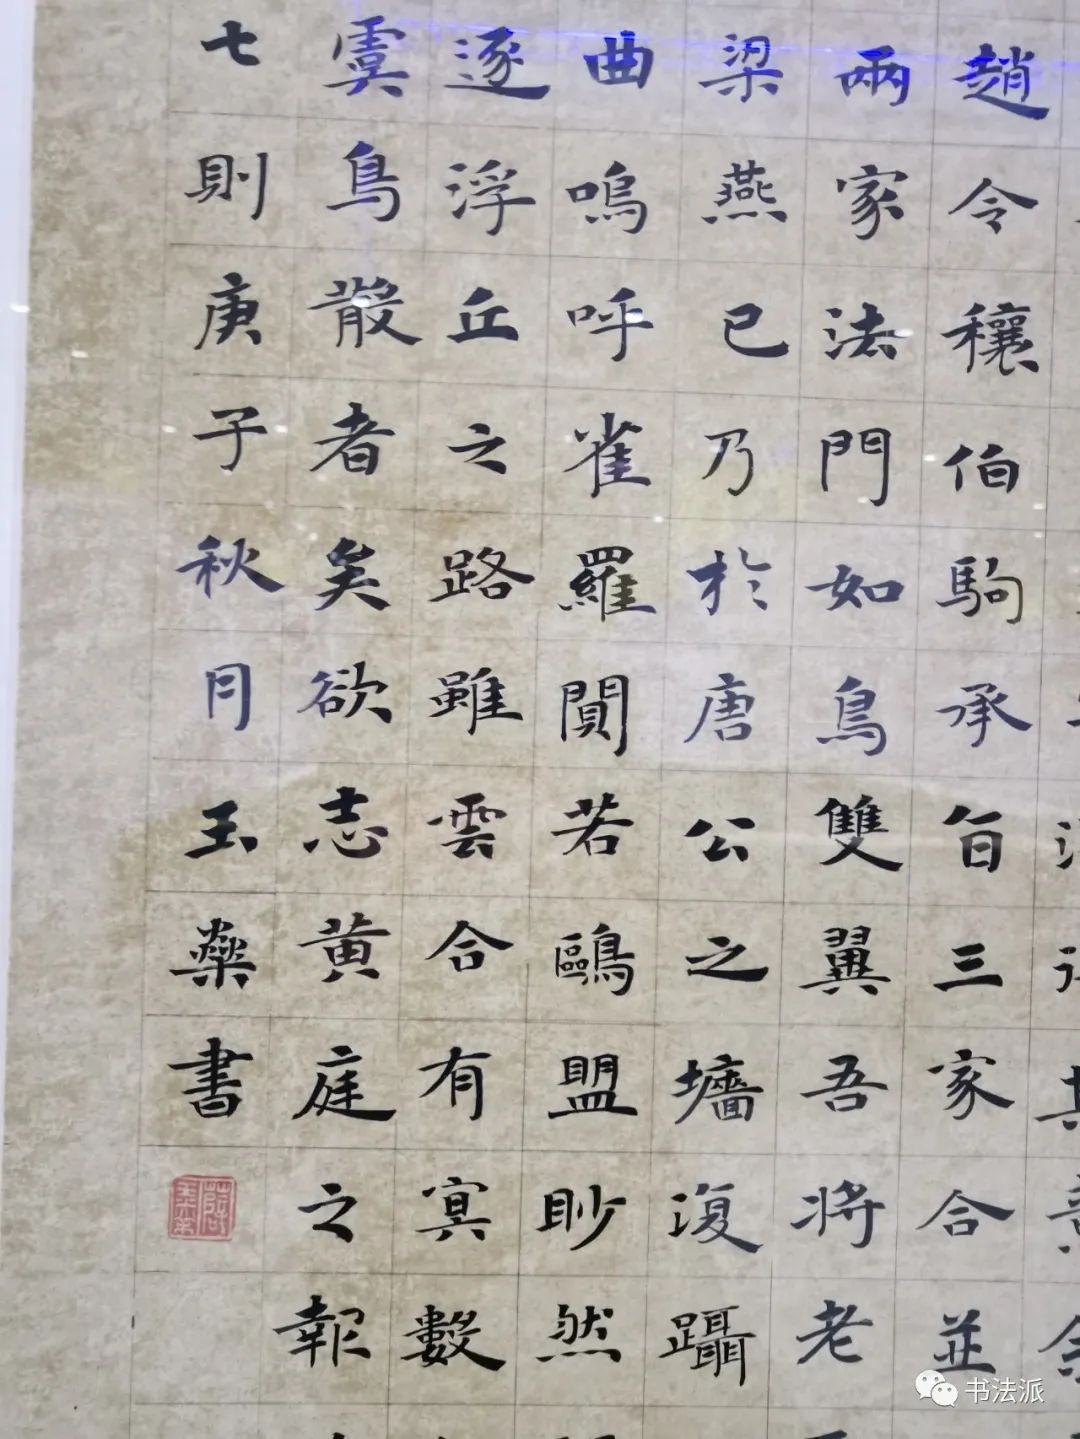 趙令穰伯駒承旨三家合並
兩家法門如鳥雙翼吾將老
梁燕已乃於唐公之墻復躡
曲鳴呼雀羅閴若鷗盟眇然
逐浮丘之路雖雲合有冥數
虞鳥散者矣欲志黄庭之報
七則庚子秋月玉燊書
书法派